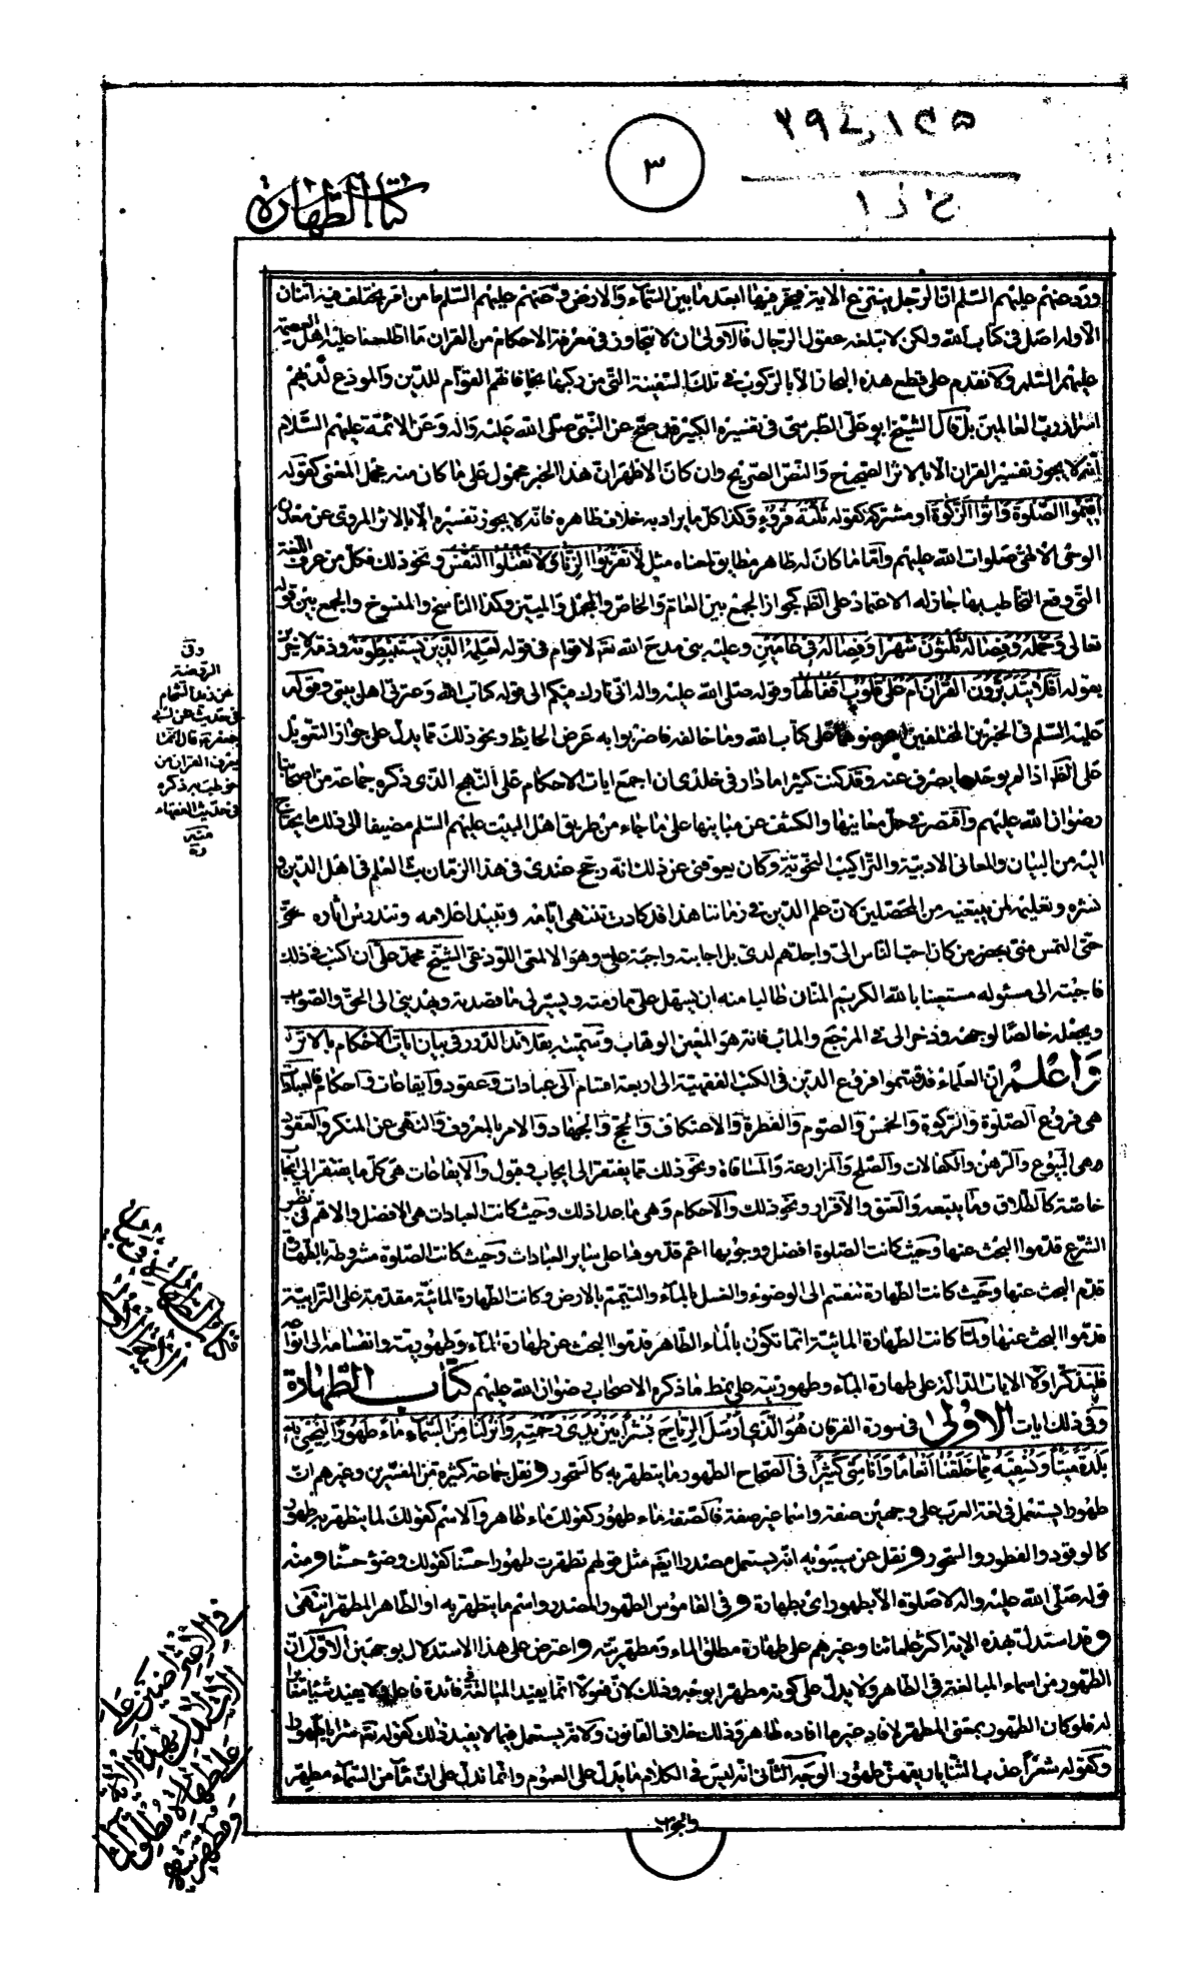 ٣
كتاب الطهارة
وورد عنهم عليهم السلم ان الرجل ينتزع الاية فيخر فيها ابعد ما بين السماء والارض وعنهم عليهم السلم ما من امر يختلف فيه اثنان
الا وله اصل في كتاب الله ولكن لا تبلغه عقول الرجال فالاولى ان لا نتجاوز في معرفة الاحكام من القران ما اطلعنا عليه اهل العصمة
عليهم السلم ولا نقدم على قطع هذه البحار الا بالركوب في تلك السفينة التي من ركبها نجا فانهم القوام للدين والمودع لديهم
اسرار رب العالمين بل قال الشيخ ابو علي الطبرسي في تفسيره الكبير قد صح عن النبي صلى الله عليه واله وعن الائمة عليهم السلام
انه لا يجوز تفسير القران الا بالاثر الصحيح والنص الصريح وان كان الاظهر ان هذا الخبر محمول على ما كان منه مجمل المعنى كقوله
اقيموا الصلوة واتوا الزكوة او مشتركه كقوله ثلثة قروء وكذا كل ما يراد به خلاف ظاهره فانه لا يجوز تفسيره الا بالاثر المروي عن معدن
الوحي الالهي صلوات الله عليهم واما ما كان له ظاهر مطابق لمعناه مثل لا تقربوا الزنا ولا تقتلوا النفس ونحو ذلك فكل من عرف اللغة
التي وقع التخاطب بها جاز له الاعتماد على الظاهر كجواز الجمع بين العام والخاص والمجمل والمبين وكذا الناسخ والمنسوخ والجمع بين قوله
تعالى وحمله وفصاله ثلثون شهرا وفصاله في عامين وعليه بنى مدح الله تعالى لاقوام في قوله لعلمه الذين يستنبطونه وذمه لاخرين
بقوله افلا يتدبرون القران ام على قلوب اقفالها وقوله صلى الله عليه واله اني تارك فيكم الى قوله كتاب الله وعترتي اهل بيتي وقوله
عليه السلم في الخبرين المختلفين اعرضوهما على كتاب الله وما خالفه فاضربوا به عرض الحايط ونحو ذلك مما يدل على جواز التعويل
على الظاهر اذا لم يوجد ما يصرف عنه وقد كنت كثيرا ما دار في خلدي ان اجمع ايات الاحكام على النهج الذي ذكره جماعة من اصحابنا
رضوان الله عليهم واقتصر في حل معانيها والكشف عن مبانيها على ما جاء من طريق اهل البيت عليهم السلم مضيفا الى ذلك ما يحتاج
اليه من البيان والمعاني الادبية والتراكيب النحوية وكان يعوقني عن ذلك انه رجح عندي في هذا الزمان بث العلم في اهل الدين و
نشره وتعليمه لمن يبتغيه من المحصلين لان علم الدين في زماننا هذا قد كادت تنتهي ايامه وتبيد اعلامه وتندرس اثاره
حتى التمس مني بعض من كان احب الناس الي واجلهم لدي بل اجابته واجبة علي وهو الالمعي اللوذعي الشيخ محمد علي ان اكتب في ذلك
فاجبته الى مسئوله مستعينا بالله الكريم المنان طالبا منه ان يسهل علي ما رمته وييسر لي ما قصدته ويهديني الى الحق والصواب
ويجعله خالصا لوجهه وذخرا لي في المرجع والماب فانه هو المعين الوهاب وسميته بقلائد الدرر في بيان ايات الاحكام بالاثر
واعلم ان العلماء قد قسموا فروع الدين في الكتب الفقهية الى اربعة اقسام الى عبادات وعقود وايقاعات واحكام فالعبادات
هي فروع الصلوة والزكوة والخمس والصوم والفطرة والاعتكاف والحج والجهاد والامر بالمعروف والنهي عن المنكر والعقود
هي البيوع والرهن والكفالات والصلح والمزارعة والمساقاة ونحو ذلك مما يفتقر الى ايجاب وقبول والايقاعات هي كل ما يفتقر الى ايجاب
خاصة كالطلاق وما يتبعه والعتق والاقرار ونحو ذلك والاحكام وهي ما عدا ذلك وحيث كانت العبادات هي الافضل والاهم في نظر
الشرع قدموا البحث عنها وحيث كانت الصلوة افضل ووجوبها اعم قدموها على ساير العبادات وحيث كانت الصلوة مشروطة بالطهارة
قدم البحث عنها وحيث كانت الطهارة تنقسم الى الوضوء والغسل بالماء والتيمم بالارض وكانت الطهارة المائية مقدمة على الترابية
قدموا البحث عنها ولما كانت الطهارة المائية انما تكون بالماء الطاهر قدموا البحث عن طهارة الماء وطهوريته وانقسامه الى اقسامه
فلنذكر اولا الايات الدالة على طهارة الماء وطهوريته على نمط ما ذكره الاصحاب رضوان الله عليهم كتاب الطهارة
وفي ذلك ايات الاولى في سورة الفرقان هو الذي ارسل الرياح بشرا بين يدي رحمته وانزلنا من السماء ماء طهورا لنحيي به
بلدة ميتا ونسقيه مما خلقنا انعاما واناسي كثيرا في الصحاح الطهور ما يتطهر به كالسحور ونقل جماعة كثيرة من المفسرين وغيرهم ان
طهورا يستعمل في لغة العرب على وجهين صفة واسما غير صفة فالصفة ماء طهور كقولك ماء طاهر والاسم كقولك لما يتطهر به طهور
كالوقود والفطور والسحور ونقل عن سيبويه انه يستعمل مصدرا ايضا مثل قولهم تطهرت طهورا حسنا كقولك وضوء حسنا ومنه
قوله صلى الله عليه واله لا صلوة الا بطهور اي بطهارة وفي القاموس الطهور المصدر واسم ما يتطهر به او الطاهر المطهر انتهى
وقد استدل بهذه الاية اكثر علمائنا وغيرهم على طهارة مطلق الماء ومطهريته واعترض على هذا الاستدلال بوجهين الاول ان
الطهور من اسماء المبالغة في الطاهر ولا يدل على كونه مطهرا بوجه وذلك لان فعولا انما يفيد المبالغة في فائدة فاعل ولا يفيد شيئا مغايرا
له فلو كان الطهور بمعنى المطهر لافاد غير ما افاده طاهر وذلك خلاف القانون ولانه يستعمل فيما لا يفيد ذلك كقوله تعالى شرابا طهورا
وكقوله شعرا عذب الثنايا ريقهن طهور الوجه الثاني انه ليس في الكلام ما يدل على العموم وانما تدل على ان ماء من السماء مطهر
وفي
الروضة
عن زيد الشحام
في حديث عن ابي
جعفر قال انما
يعرف القران من
خوطب به ذكره
في حديث الفقهاء
منه
ره
كتاب الطهارة
في الاعتراضين على
الاستدلال بهذه الاية
على طهارة مطلق الماء
ومطهريته